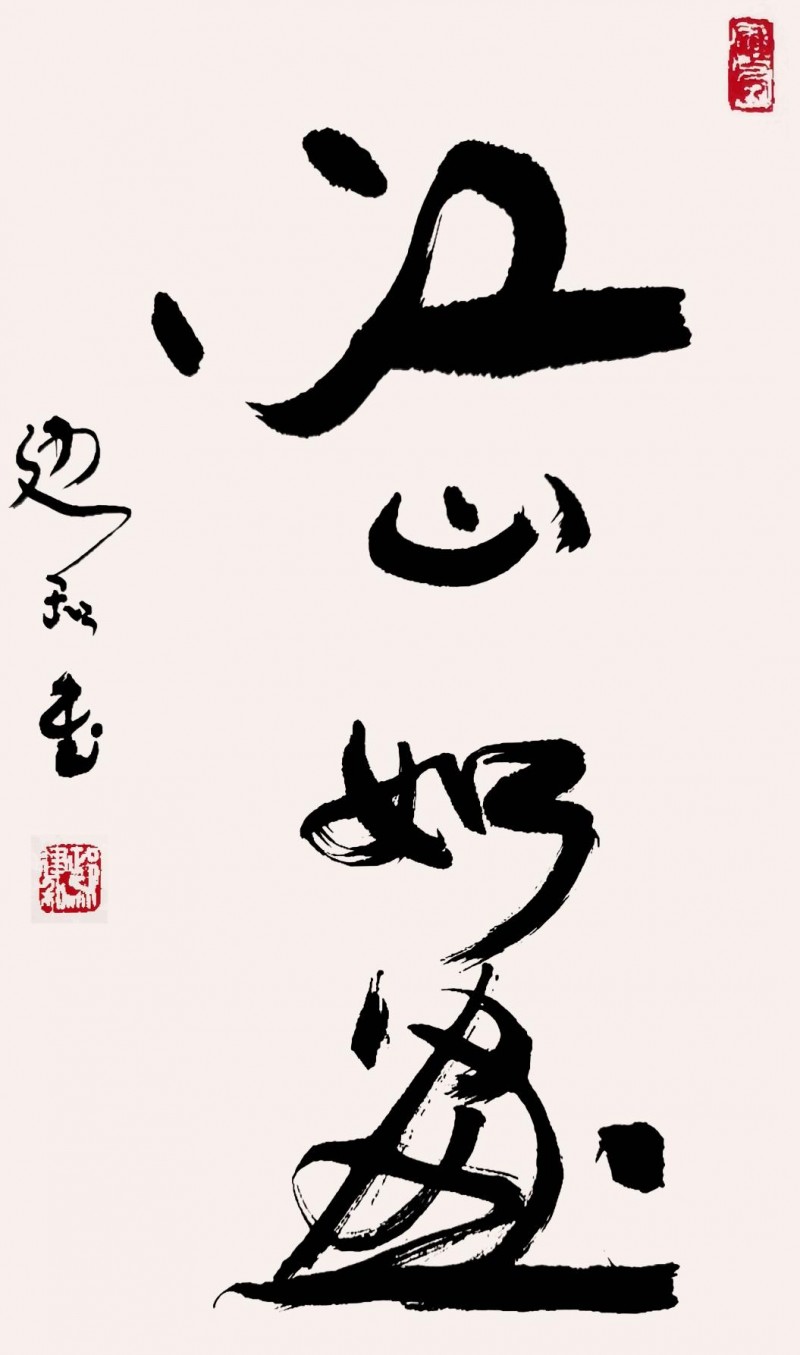 江山如画
边和书